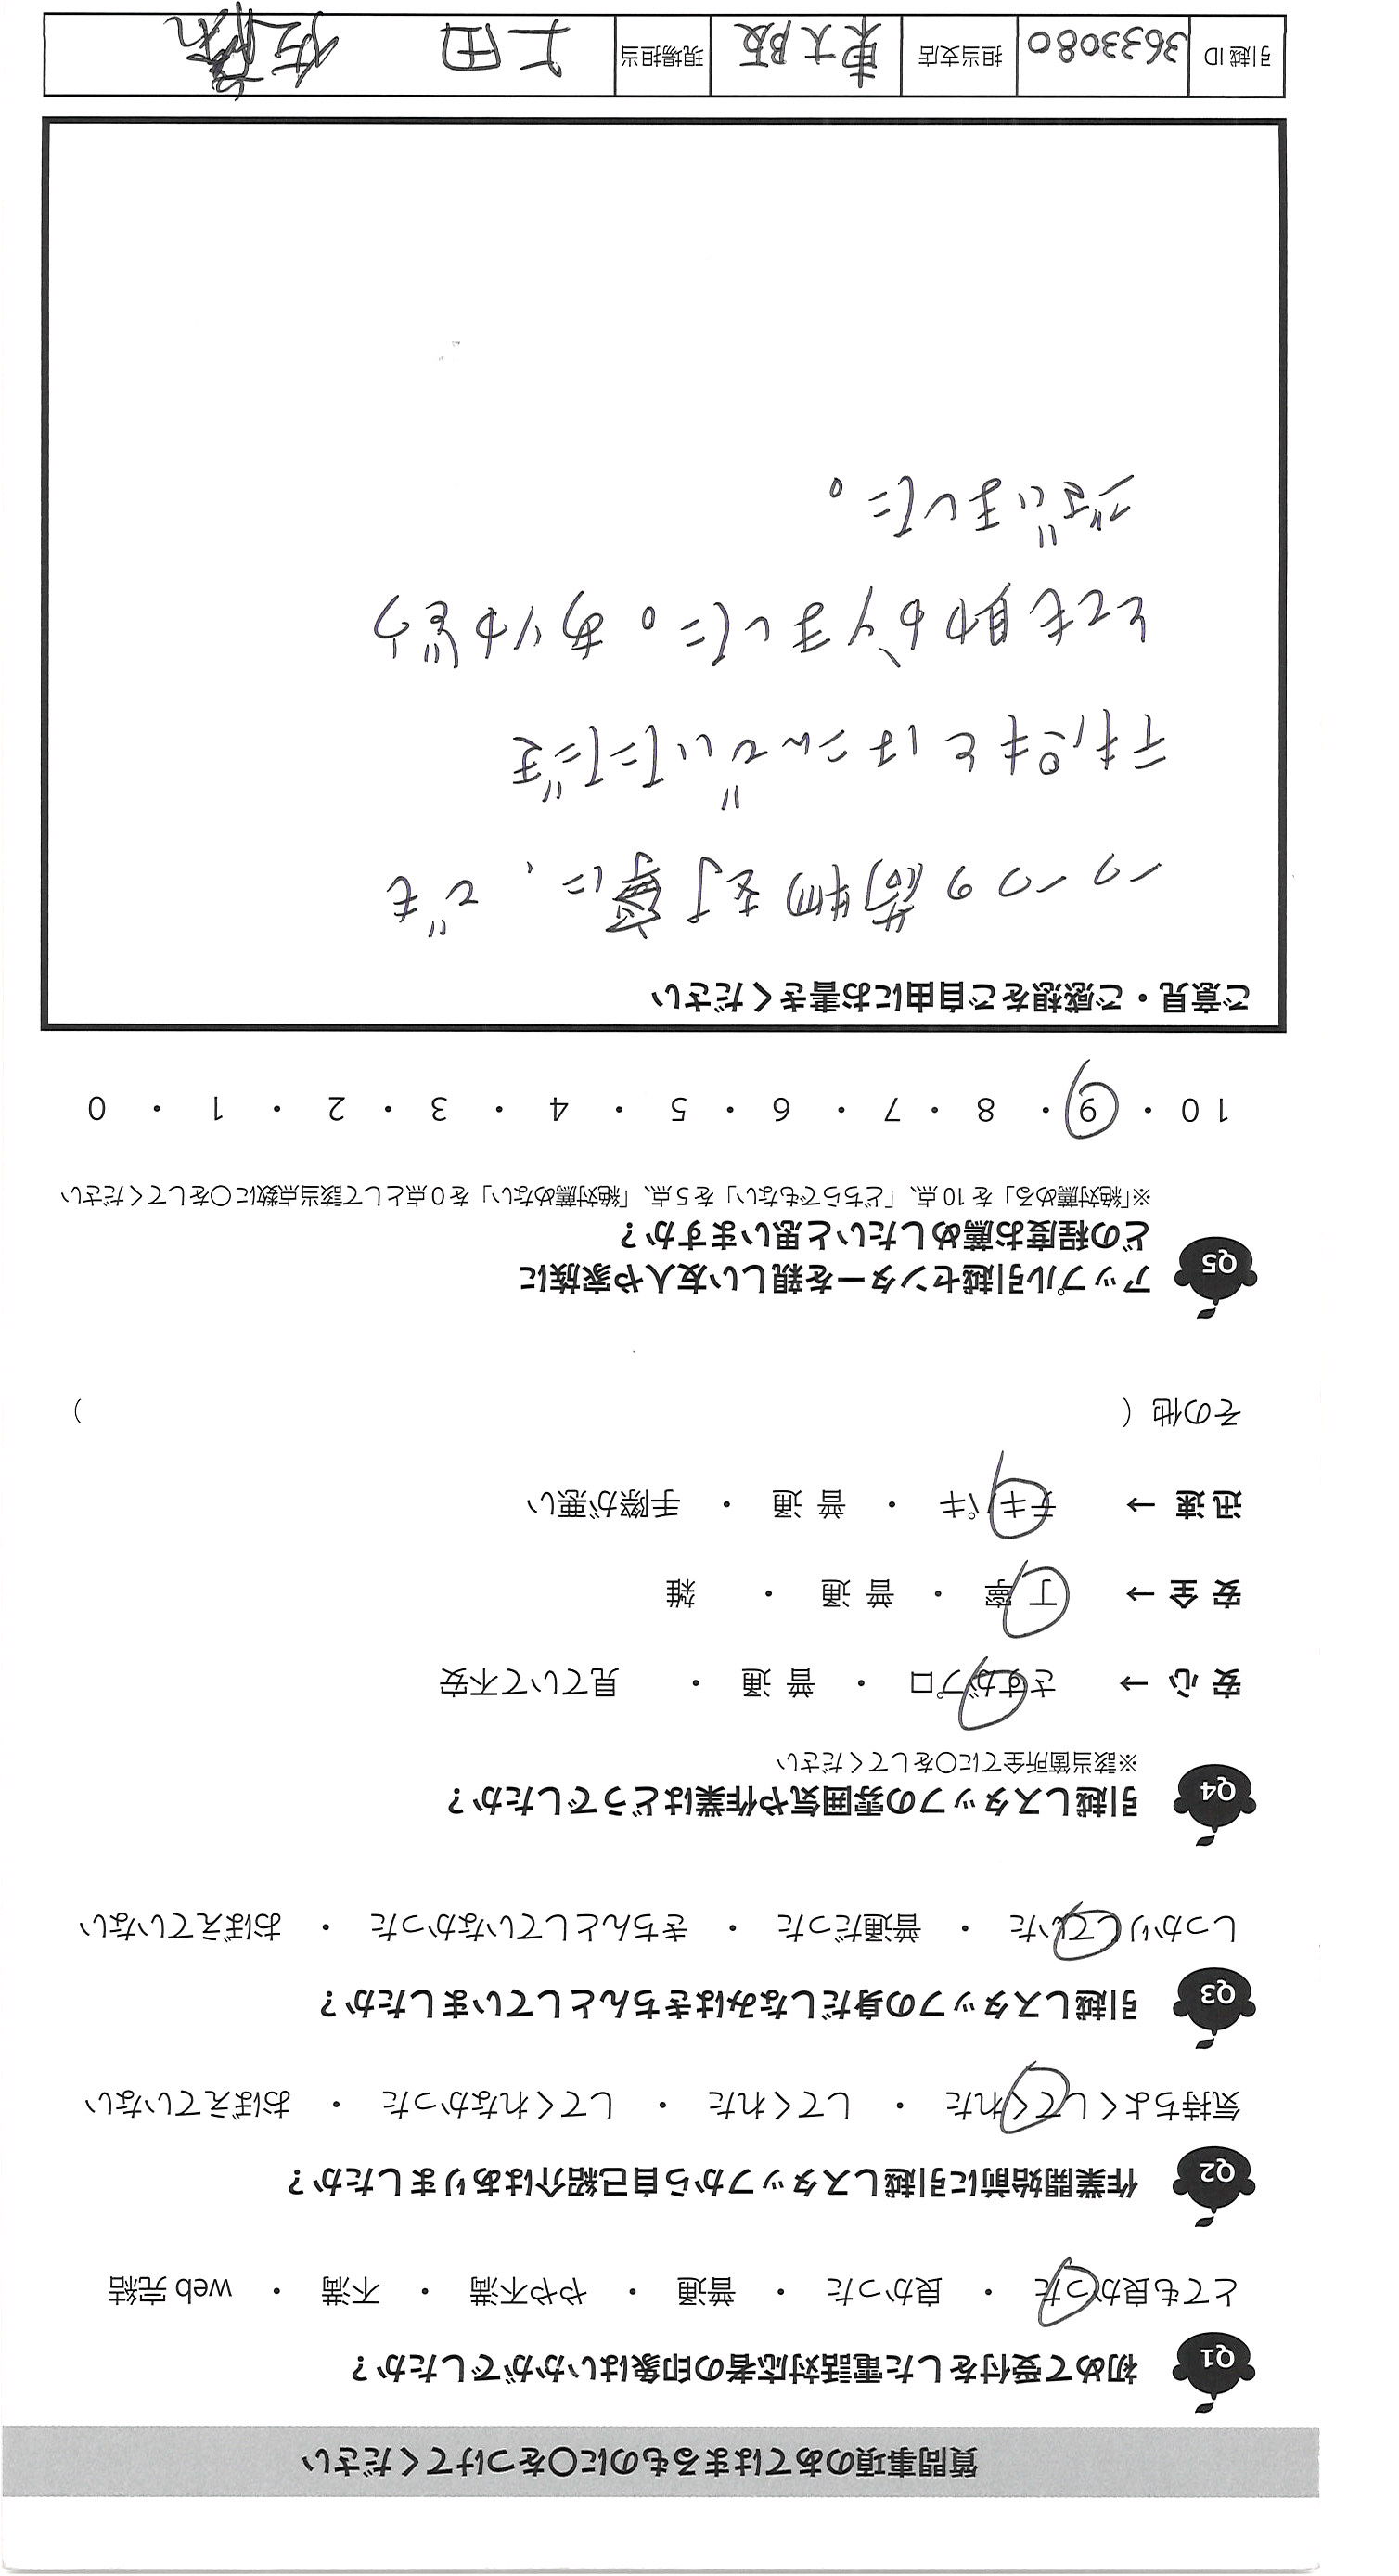 質問事項のあてはまるものに○をつけてください
Q1 初めて受付をした電話対応者の印象はいかがでしたか？
とても良かった ・ 良かった ・ 普通 ・ やや不満 ・ 不満 ・ web 完結
Q2 作業開始前に引越しスタッフから自己紹介はありましたか？
気持ちよくしてくれた ・ してくれた ・ してくれなかった ・ おぼえていない
Q3 引越しスタッフの身だしなみはきちんとしていましたか？
しっかりしていた ・ 普通だった ・ きちんとしていなかった ・ おぼえていない
Q4 引越しスタッフの雰囲気や作業はどうでしたか？
※該当箇所全てに○をしてください
安 心 → さすがプロ ・ 普 通 ・ 見ていて不安
安 全 → 丁 寧 ・ 普 通 ・ 雑
迅 速 → テキパキ ・ 普 通 ・ 手際が悪い
その他（ ）
Q5 アップル引越センターを親しい友人や家族に
どの程度お薦めしたいと思いますか？
※「絶対薦める」を 10 点、「どちらでもない」を 5 点、「絶対薦めない」を 0 点として該当点数に○をしてください
10 ・ 9 ・ 8 ・ 7 ・ 6 ・ 5 ・ 4 ・ 3 ・ 2 ・ 1 ・ 0
ご意見・ご感想をご自由にお書きください
一つ一つの荷物を丁寧に、でも
テキパキとはこんでいただき
とても助かりました。ありがとう
ございました。
引越 ID 3633080 担当支店 東大阪 現場担当 上田 佐藤